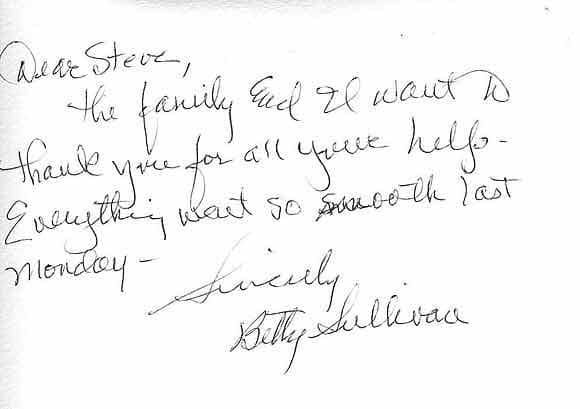 Dear Steve,
the family and I want to
thank you for all your help -
Everything went so smooth last
Monday -
Sincerely
Betty Sullivan